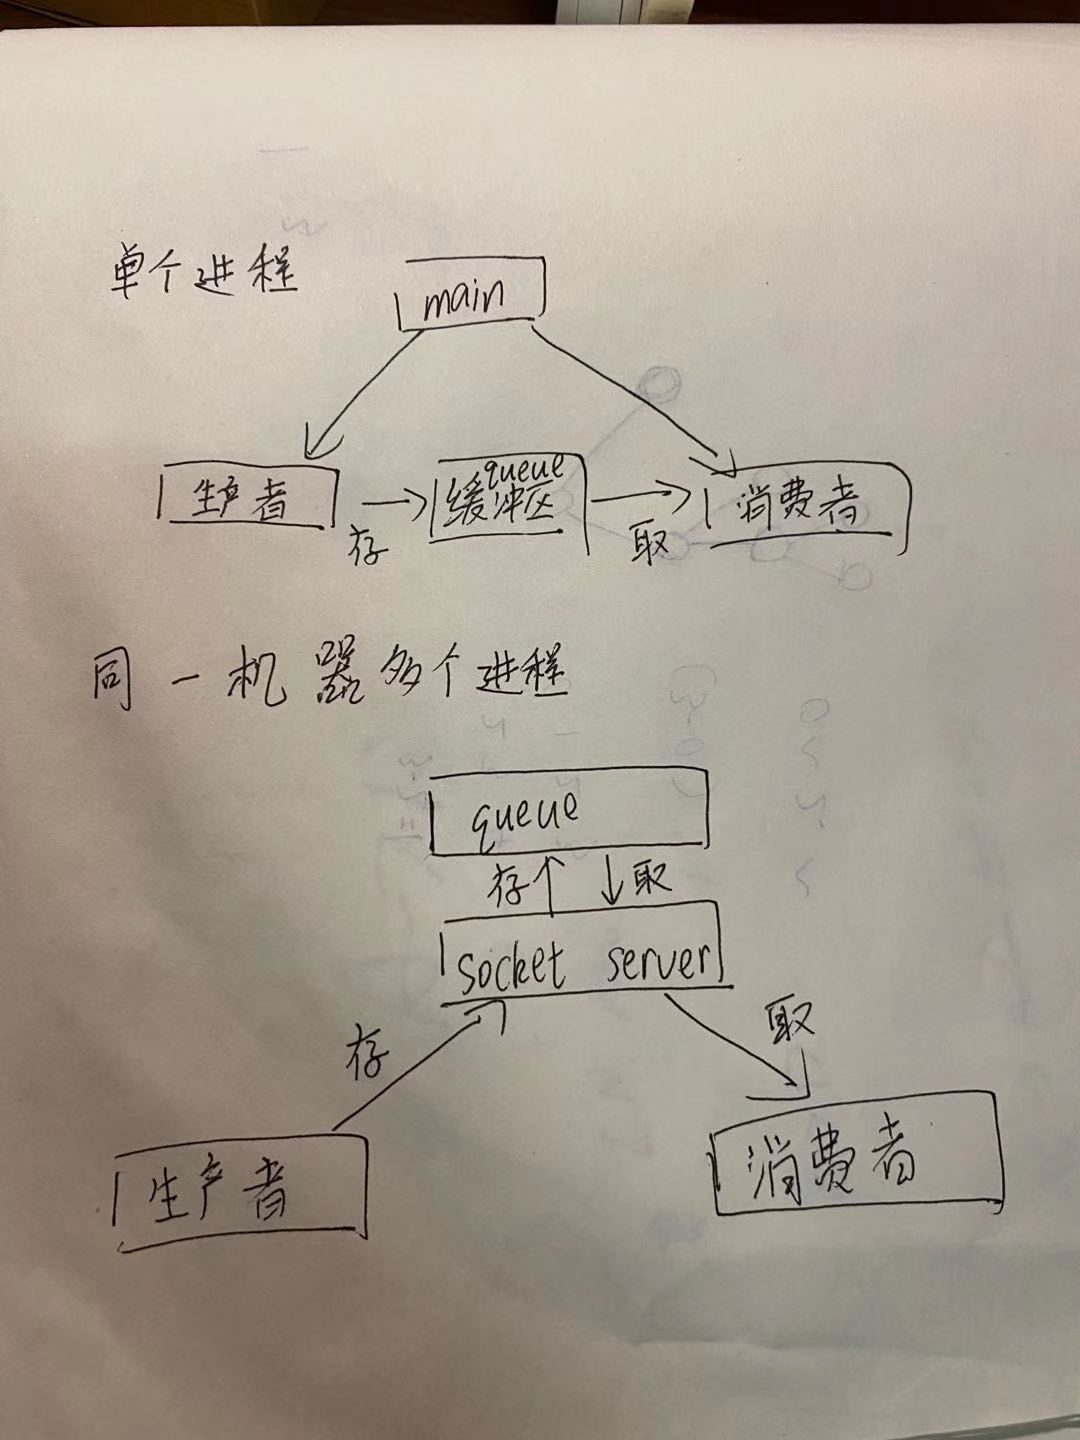 单个进程
main
生产者
queue
缓冲区
消费者
存
取
同一机器多个进程
queue
存
取
socket server
存
取
生产者
消费者